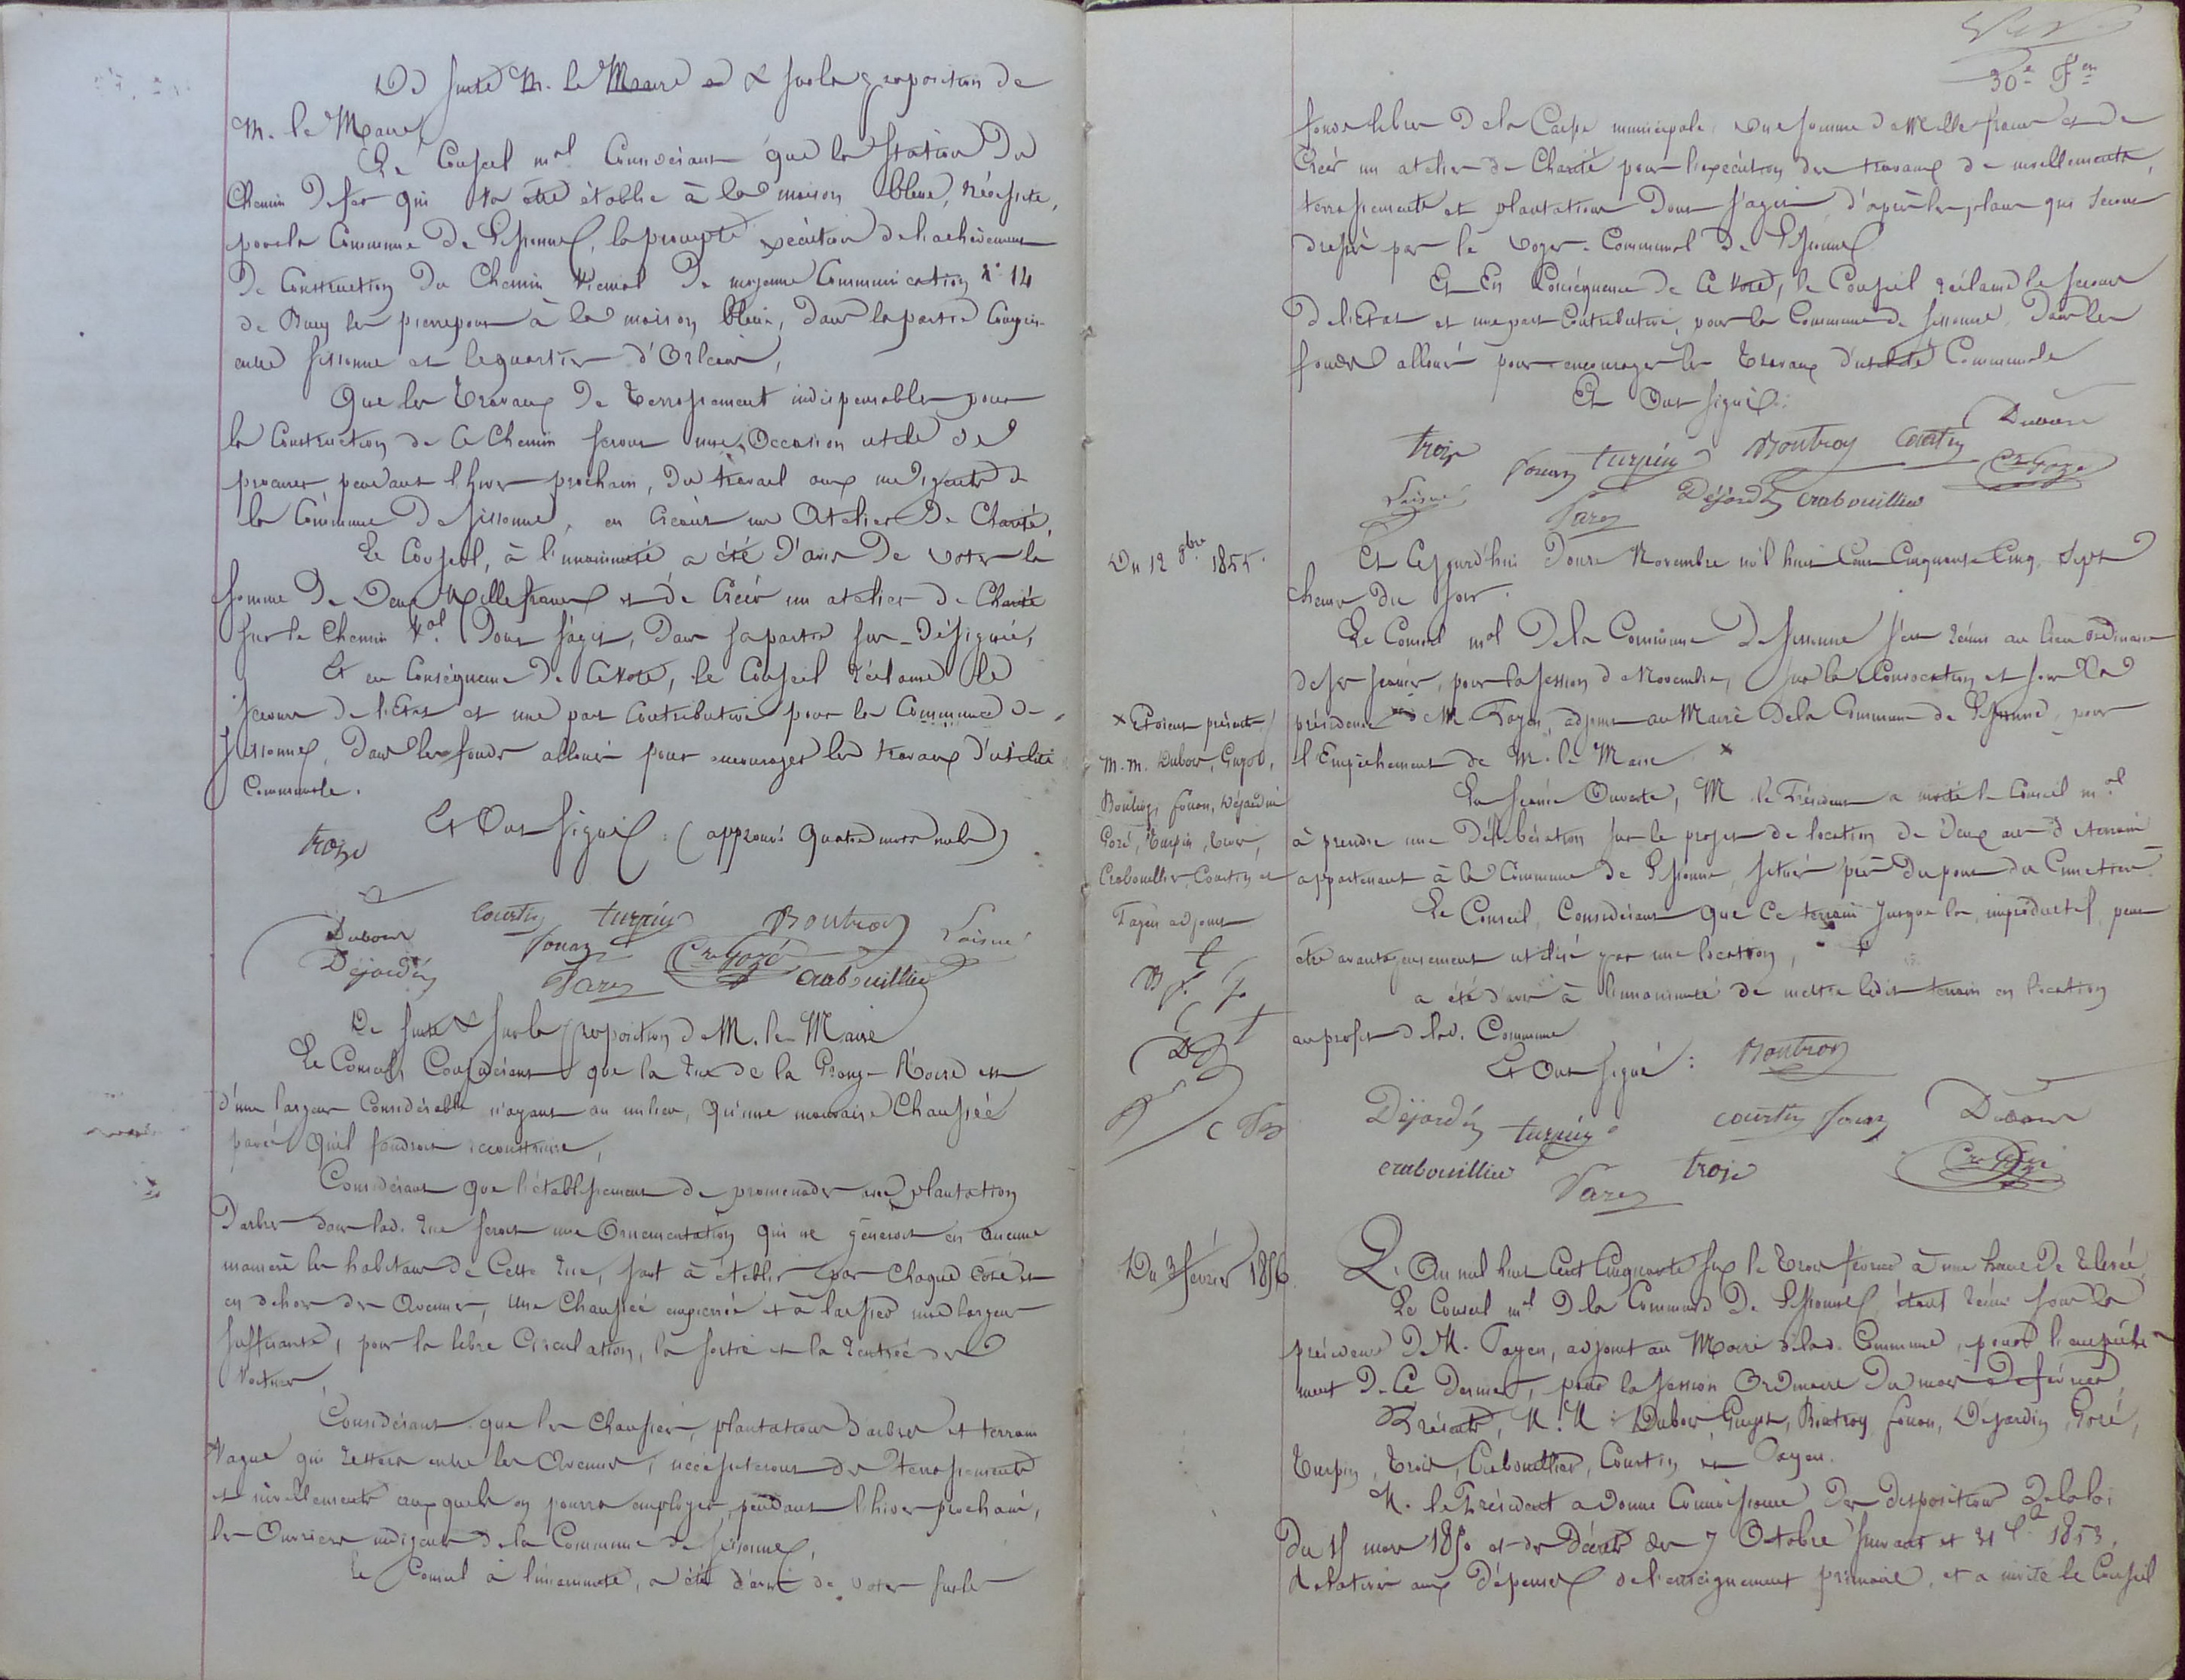 De suite M. le Maire et & sur la proposition de
M. le Maire
Le Conseil mal Considérant que la Station du
Chemin de fer qui va être établie à la maison bleue, nécessite,
pour la Commune de Sissonne, la prompte exécution de l'achèvement
de Construction du Chemin Vicinal de moyenne Communication N° 14
de Bucy les pierrepont à la maison bleue, dans la partie Comprise
entre Sissonne et le quartier d'Orléans,
Que les Travaux de Terrassement indispensables pour
la Construction de Ce Chemin seront une Occasion utile de
procurer pendant l'hiver prochain, du travail aux indigents de
la Commune de Sissonne, en Créant un Atelier de Charité,
Le Conseil, à l'unanimité a été d'avis de voter la
Somme de Deux Mille francs et de Créer un atelier de Charité
sur le Chemin Val dont s'agit, dans sa partie sus-désignée,
Et en Conséquence de Ce Vote, le Conseil réclame le
secours de l'Etat et une part Contributive pour la Commune de
Sissonne, dans les fonds alloués pour encourager les travaux d'utilité
Communale.
Et Ont Signé : (approuvé quatre mots nuls)
troize
Dubois Courtin turpin Boutroy Loisné
Déjardin fouan Gozé Crabouillier
De suite & sur la proposition de M. le Maire
Le Conseil, Considérant que la rue de la Grange Noire est
d'une largeur Considérable n'ayant au milieu, qu'une mauvaise Chaussée
pavée qu'il faudrait reconstruire,
Considérant que l'établissement de promenades avec plantation
d'arbres dans lad. rue serait une Ornementation qui ne gênerait en aucune
manière les habitans de Cette rue, sauf à établir par chaque Côté et
en dehors des Avenues, une Chaussée empierrée et à laisser une largeur
suffisante, pour la libre Circulation, la sortie et la rentrée des
Voitures
Considérant que les Chaussées, plantations d'arbres et terrain
Vague qui restera entre les Avenues, nécessiteront des terrassements
et nivellements auxquels on pourra employer, pendant l'hiver prochain,
les Ouvriers indigents de la Commune de Sissonne,
Le Conseil à l'unanimité, a été d'avis de voter sur les
30e Fet
fonds libres de la Caisse municipale, une somme de Mille francs et de
Créer un atelier de Charité pour l'exécution des travaux de nivellements,
terrassements et plantations dont s'agit, d'après les plans qui seront
dressés par le voyer-Communal de Sissonne
Et En Conséquence de Ce Vote, le Conseil réclame le secours
de l'Etat et une part Contributive, pour la Commune de Sissonne, dans les
fonds alloués pour encourager les Travaux d'utilité Communale
Et Ont Signé :
troize fouan turpin Boutroy Courtin Dubois
Loisné Déjardin Crabouillier Gozé
Du 12 9bre 1855.
Et Cejourd'hui Douze Novembre mil huit Cent Cinquante Cinq, Sept
heures du soir.
Le Conseil mal de la Commune de Sissonne s'est réuni au lieu ordinaire
de ses séances, pour la session de Novembre, sur la Convocation et sous la
présidence de M. Payen, adjoint au Maire de la Commune de Sissonne, pour
l'Empêchement de M. le Maire x
x Etaient présents
M.M. Dubois, Guyot,
Boutroy, fouan, Déjardin
Gozé, Turpin, Trois,
Crabouillier, Courtin et
Payen adjoint
La séance Ouverte, M. le Président a invité le Conseil mal
à prendre une Délibération sur le projet de location de Deux ares de terrain
appartenant à la Commune de Sissonne, situés près du pont du Cimetière.
Le Conseil, Considérant que Ce terrain jusque là, improductif, peut
être avantageusement utilisé par une location,
a été d'avis à l'unanimité de mettre ledit terrain en location
au profit de lad. Commune
Et Ont Signé : Boutroy
Déjardin turpin Courtin fouan Dubois
Crabouillier troize Gozé
Du 3 février 1856.
L'An mil huit Cent Cinquante Six le Trois février à une heure de relevée,
Le Conseil mal de la Commune de Sissonne, étant réuni sous la
présidence de M. Payen, adjoint au Maire de lad. Commune, pour l'empêche-
ment de Ce dernier, pour la session Ordinaire du mois de février
Présents, M.M : Dubois, Guyot, Boutroy, fouan, Déjardin, Gozé,
Turpin, Trois, Crabouillier, Courtin et Payen.
M. le Président a donné Connaissance des dispositions de la loi
du 15 mars 1850 et des Décrets des 7 Octobre suivant et 31 Xbre 1853,
relatives aux dépenses de l'enseignement primaire, et a invité le Conseil